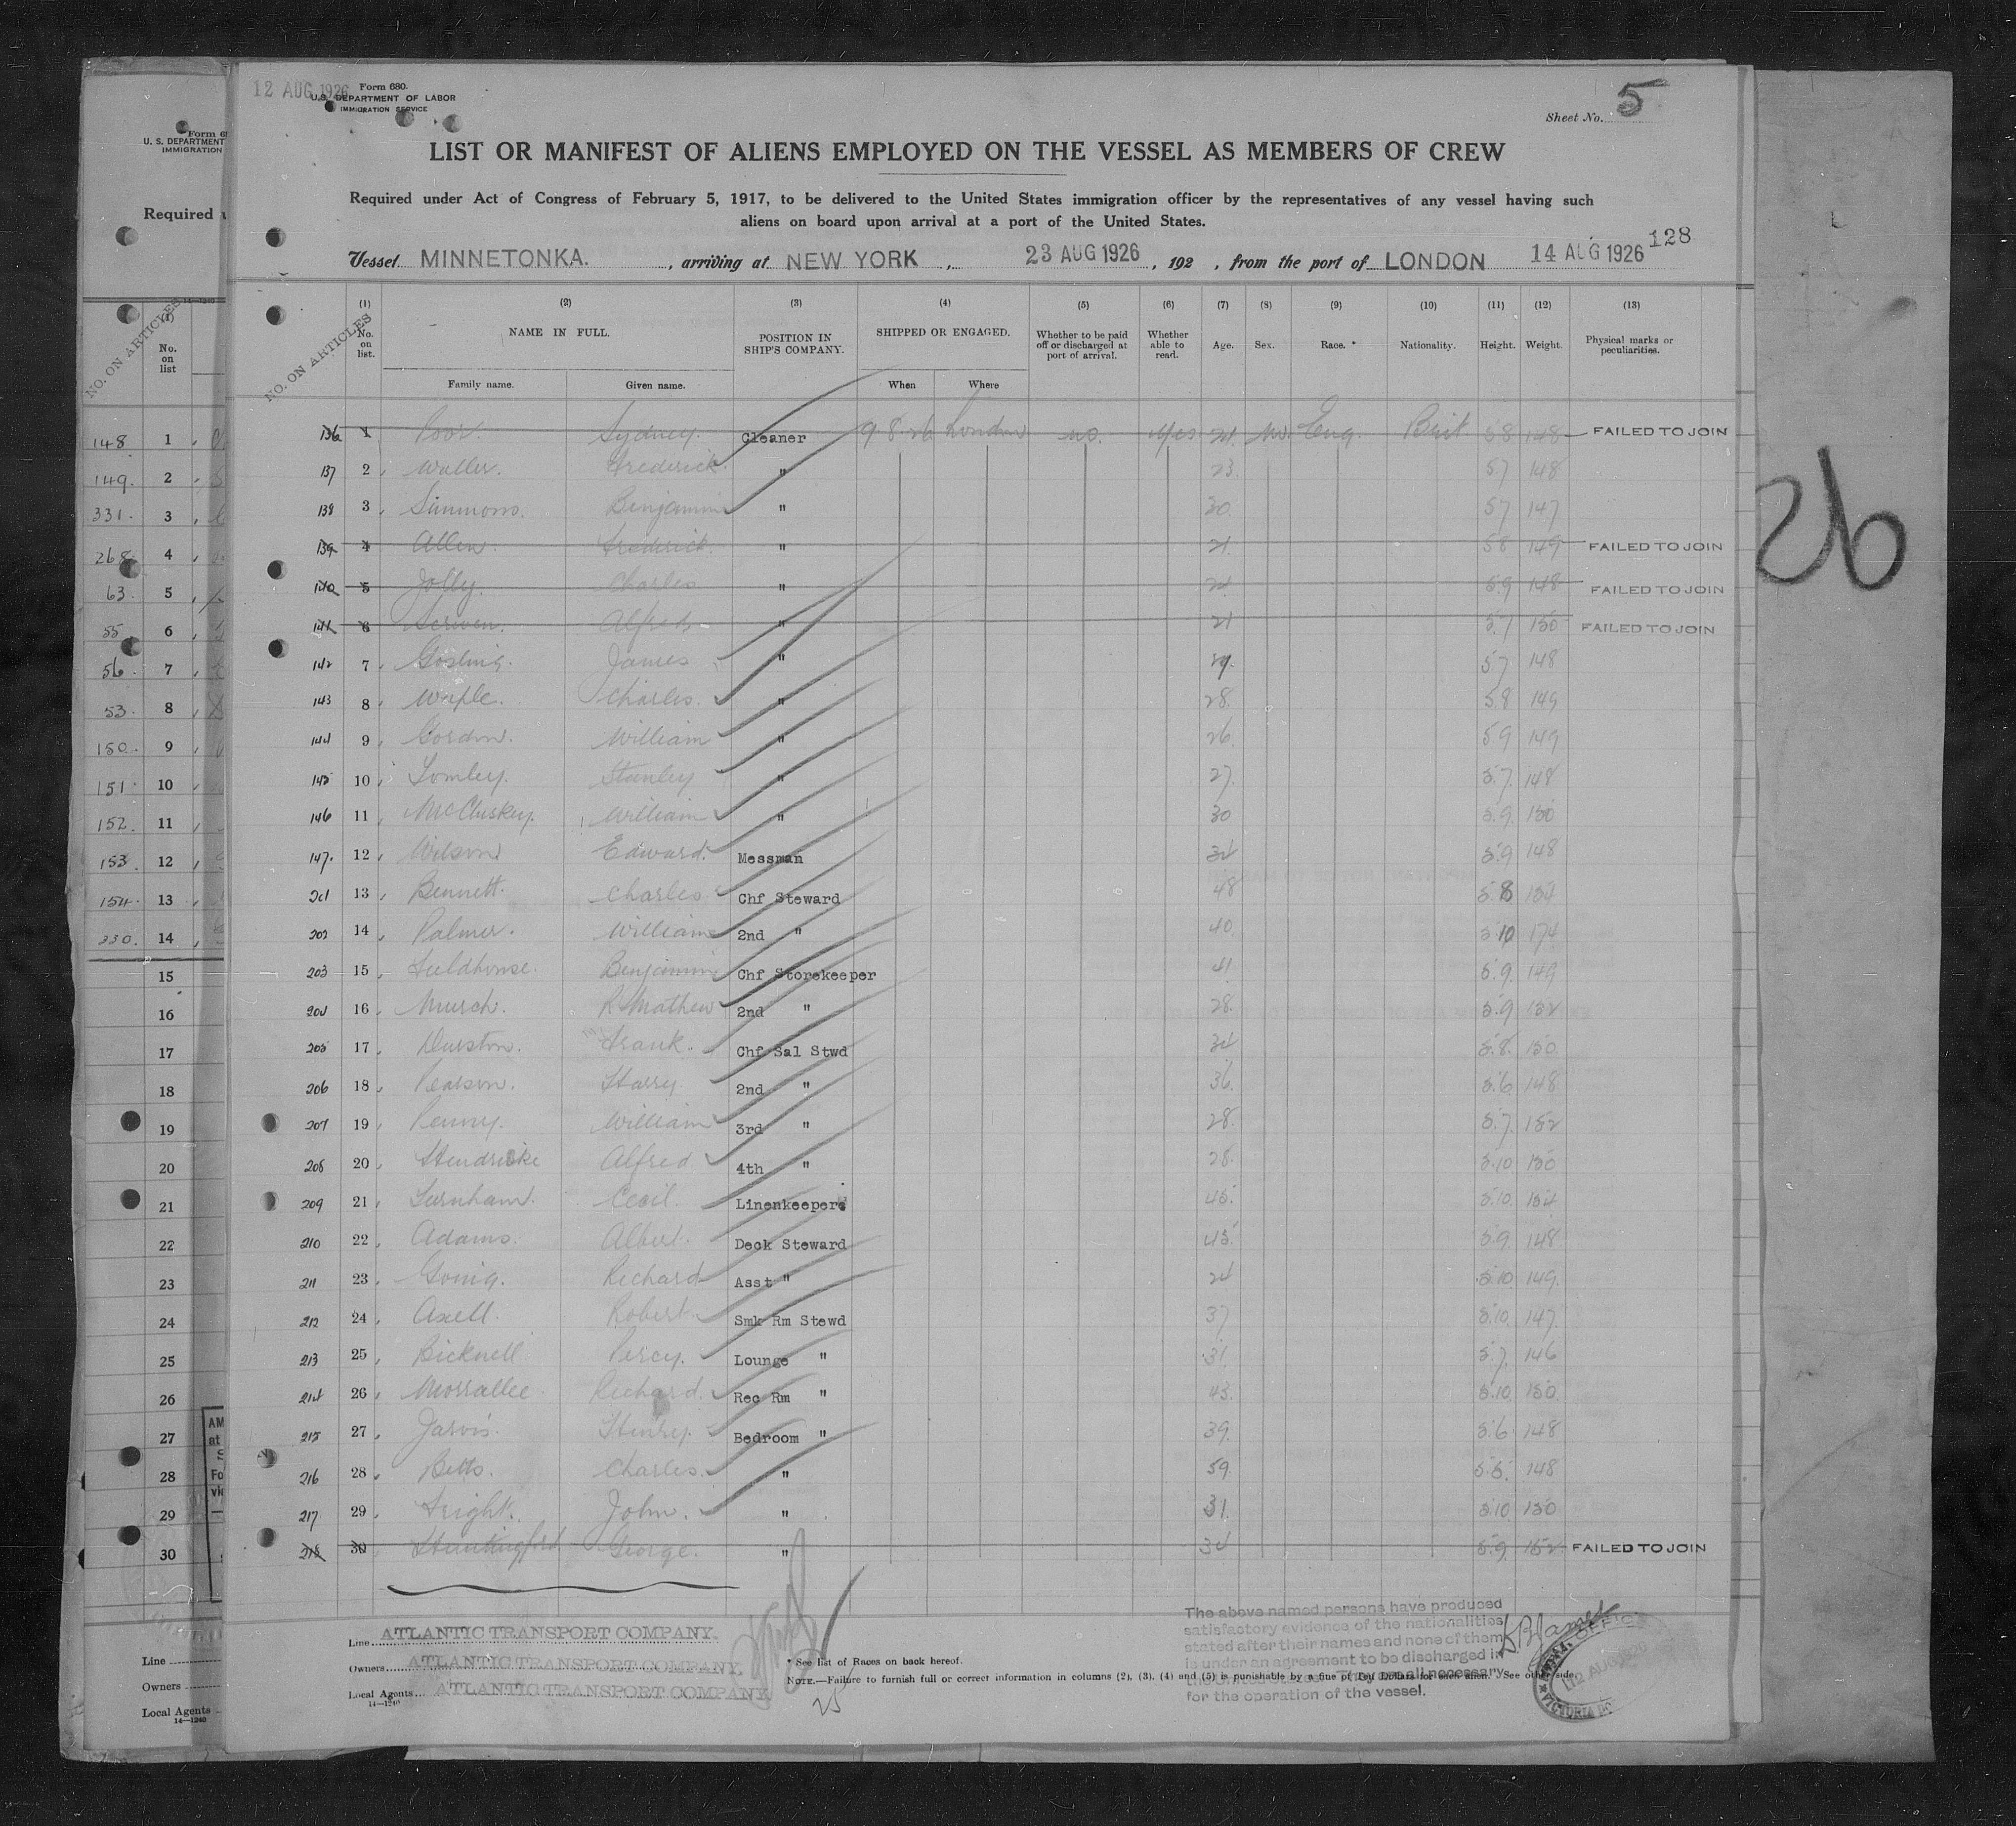 12 AUG 1926
Form 680.
U.S. DEPARTMENT OF LABOR
IMMIGRATION SERVICE
Sheet No. 5
LIST OR MANIFEST OF ALIENS EMPLOYED ON THE VESSEL AS MEMBERS OF CREW
Required under Act of Congress of February 5, 1917, to be delivered to the United States immigration officer by the representatives of any vessel having such
aliens on board upon arrival at a port of the United States.
128
Vessel MINNETONKA. , arriving at NEW YORK , 23 AUG 1926 , 192 , from the port of LONDON 14 AUG 1926
NO. ON ARTICLES
(1) No. on list.
(2) NAME IN FULL. Family name. Given name.
(3) POSITION IN SHIP'S COMPANY.
(4) SHIPPED OR ENGAGED. When Where
(5) Whether to be paid off or discharged at port of arrival.
(6) Whether able to read.
(7) Age.
(8) Sex.
(9) Race. *
(10) Nationality.
(11) Height.
(12) Weight.
(13) Physical marks or peculiarities.
136 1 Sydney. Cleaner 9 8 26 London no. Yes 21 M. Eng. Brit 5 8 148 FAILED TO JOIN
137 2 Waller. Frederick. " 23. 5 7 148
138 3 Simmons. Benjamin " 30. 5 7 147
139 4 Allen. Frederick. " 21. 5 8 149 FAILED TO JOIN
140 5 Jolly. Charles " 5.9 148 FAILED TO JOIN
141 6 Scriven. Alfred " 21 5.7 150 FAILED TO JOIN
142 7 Gosling. James " 5 7 148
143 8 Waple. Charles. " 28. 5.8 149
144 9 Gordon. William " 26. 5 9 149
145 10 Stanley " 27. 5.7. 148
146 11 McCluskey. William " 30 5.9. 150
147. 12 Wilson Edward. Messman 34 5.9 148
201 13 Bennett. Charles Chf Steward 48 5 8 154
202 14 Palmer. William 2nd " 40. 5 10 174
203 15 Fieldhouse. Benjamin Chf Storekeeper 41 5.9. 149
204 16 Murch. R. Mathew 2nd " 28. 5.9 152
205 17 Durston. Frank. Chf Sal Stwd 34 5.8. 150
206 18 Pearson. Harry 2nd " 36. 5.6 148
207 19 Penny. William 3rd " 28. 5.7. 152
208 20 Alfred 4th " 28. 5.10 150
209 21 Farnham. Cecil. Linenkeeper 45. 5.10. 154
210 22 Adams. Albert. Deck Steward 45. 5.9. 148
211 23 Richard Asst " 24 5.10 149.
212 24 Axell. Robert. Smk Rm Stewd 37 5.10. 147.
213 25 Bicknell Percy. Lounge " 31 5.7. 146
214 26 Morrallee Richard. Rec Rm " 43. 5.10 150
215 27 Jarvis. Henry. Bedroom " 39. 5.6 148
216 28 Betts. Charles. " 59. 5.5. 148
217 29 John. " 31. 5.10 150
218 30 Huntingford George. " 34 5.9 152 FAILED TO JOIN
Line ATLANTIC TRANSPORT COMPANY.
Owners ATLANTIC TRANSPORT COMPANY.
Local Agents ATLANTIC TRANSPORT COMPANY
14—1240
25
* See list of Races on back hereof.
NOTE.—Failure to furnish full or correct information in columns (2), (3), (4) and (5) is punishable by a fine of Ten Dollars for each alien. See other side.
The above named persons have produced
satisfactory evidence of the nationalities
stated after their names and none of them
is under an agreement to be discharged in
the United States. They are all necessary
for the operation of the vessel.
12 AUG 1926
26
Form 6
U. S. DEPARTMENT
IMMIGRATION
Required
NO. ON ARTICLES
No. on list
148 1
149. 2
331. 3
268 4
63. 5
55 6
56. 7
53. 8
150. 9
151 10
152. 11
153. 12
154. 13
330. 14
15
16
17
18
19
20
21
22
23
24
25
26
27
28
29
30
Line
Owners
Local Agents
14—1240